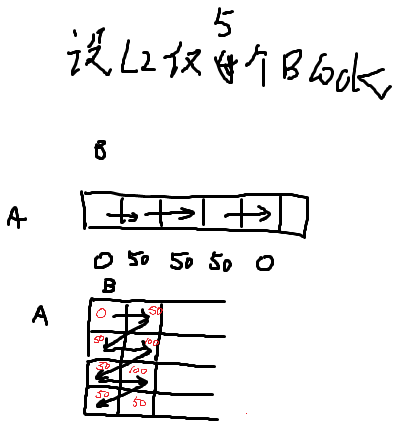 设L2仅5个Block
B
A
0 50 50 50 0
B
A
0 50
50 100
50 100
50 50